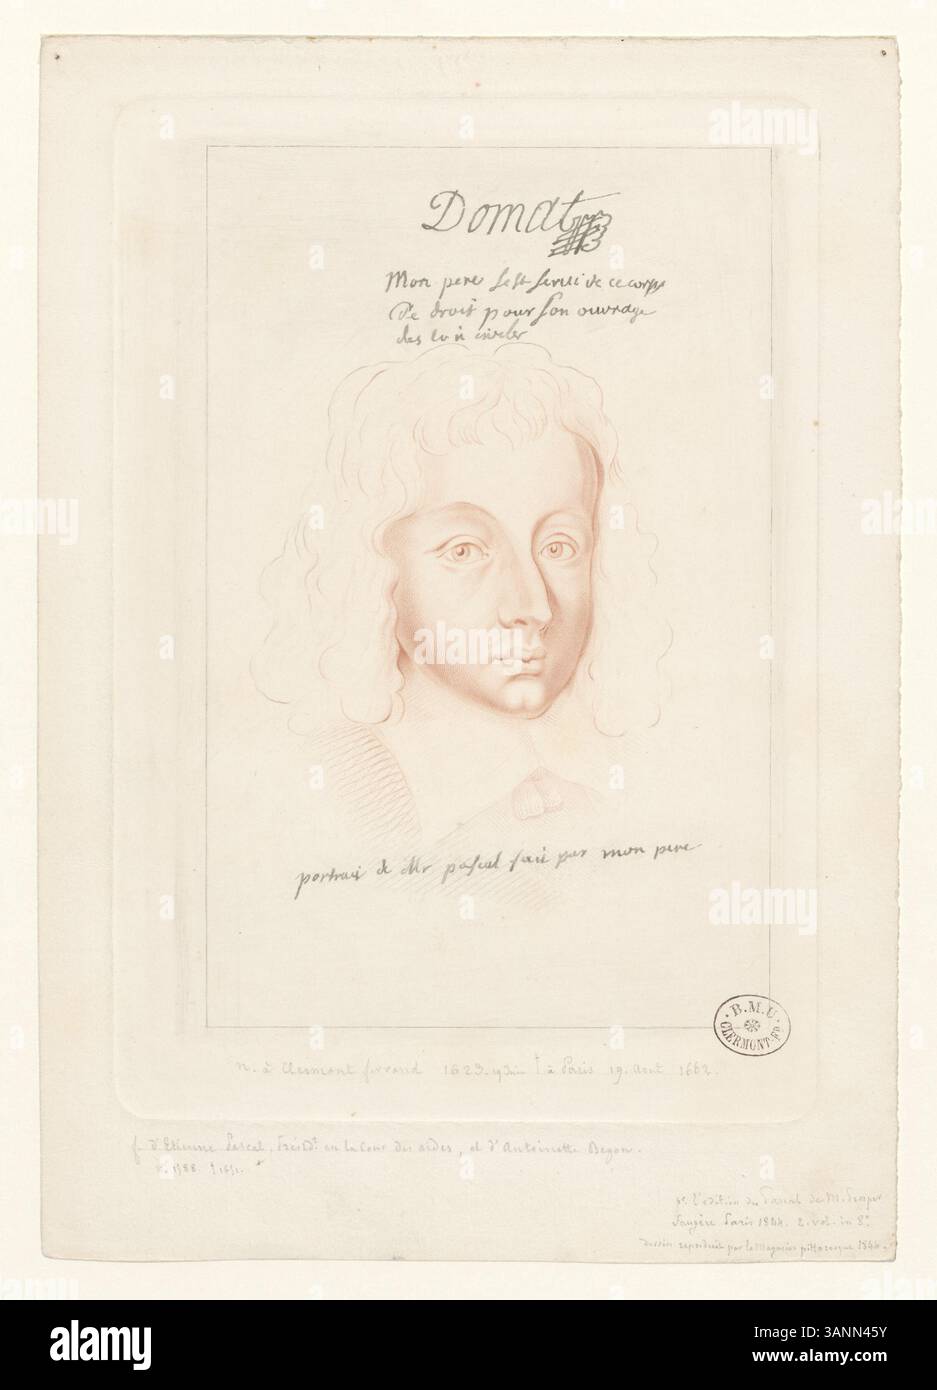 Domat
Mon pere sest servi de ce corps
De droit pour son ouvrage
des loix civiles
portrait de Mr pascal fait par mon pere
B. M. U.
CLERMONT-FD
n. à Clermont ferrand 1623. † à Paris 19. Aout 1662.
f. d'Etienne Pascal, Présidt. en la Cour des aides, et d'Antoinette Begon.
n. 1588.
pr. l'édition du Pascal de M. Prosper
Faugère. Paris 1844. 2. vol. in 8°.
dessin reproduit par le Magasin pittoresque 1844.
alamy
www.alamy.com
Image ID: 3ANN45Y